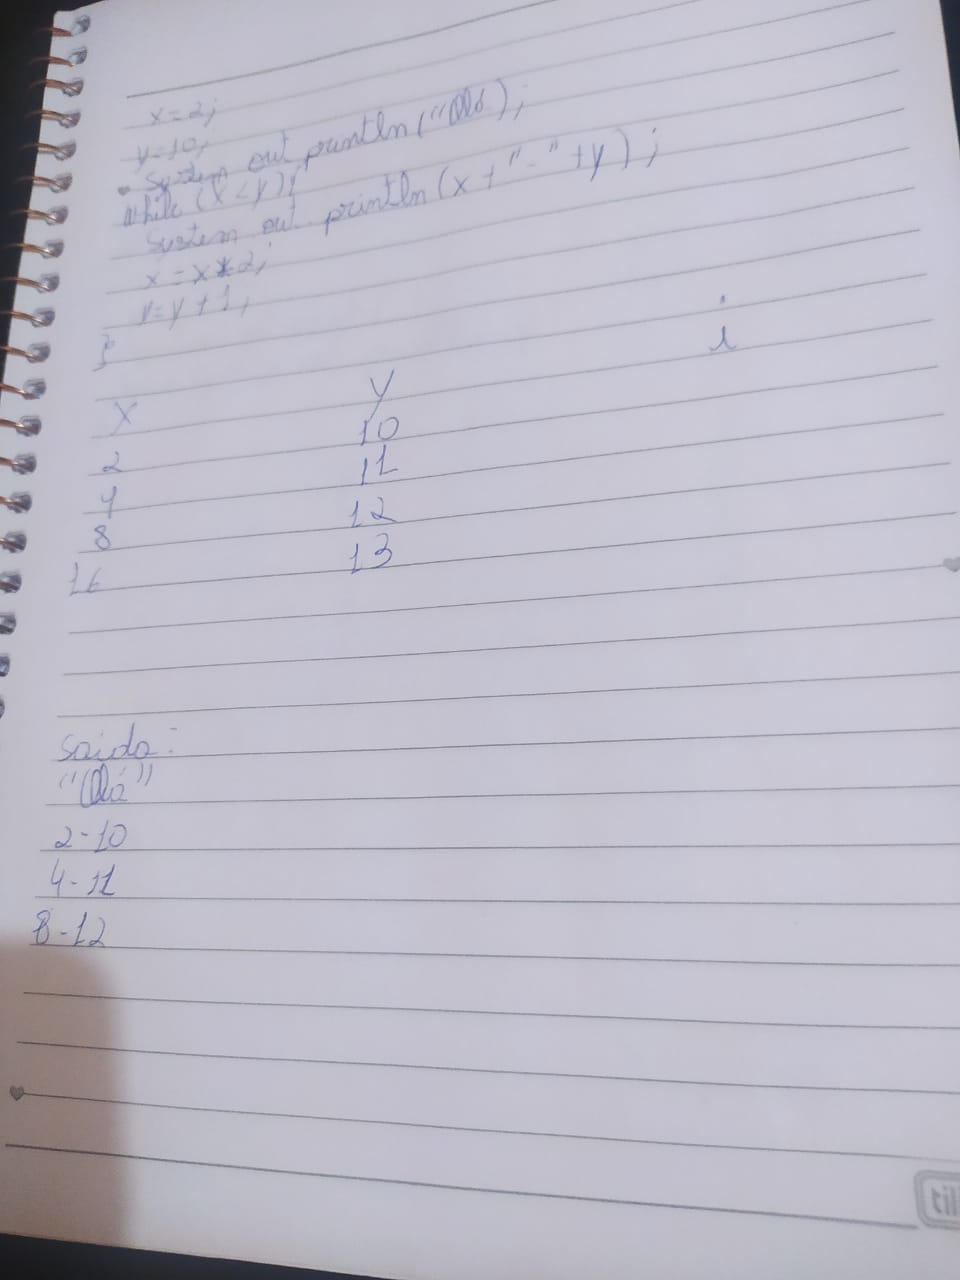 x = 2;
y = 10;
• System out println ("Olá);
While (x < y) {
System out println (x + "-" + y);
x = x * 2;
y = y + 1;
}
i
x y
2 10
4 11
8 12
16 13
Saida:
"Olá"
2-10
4-11
8-12
til